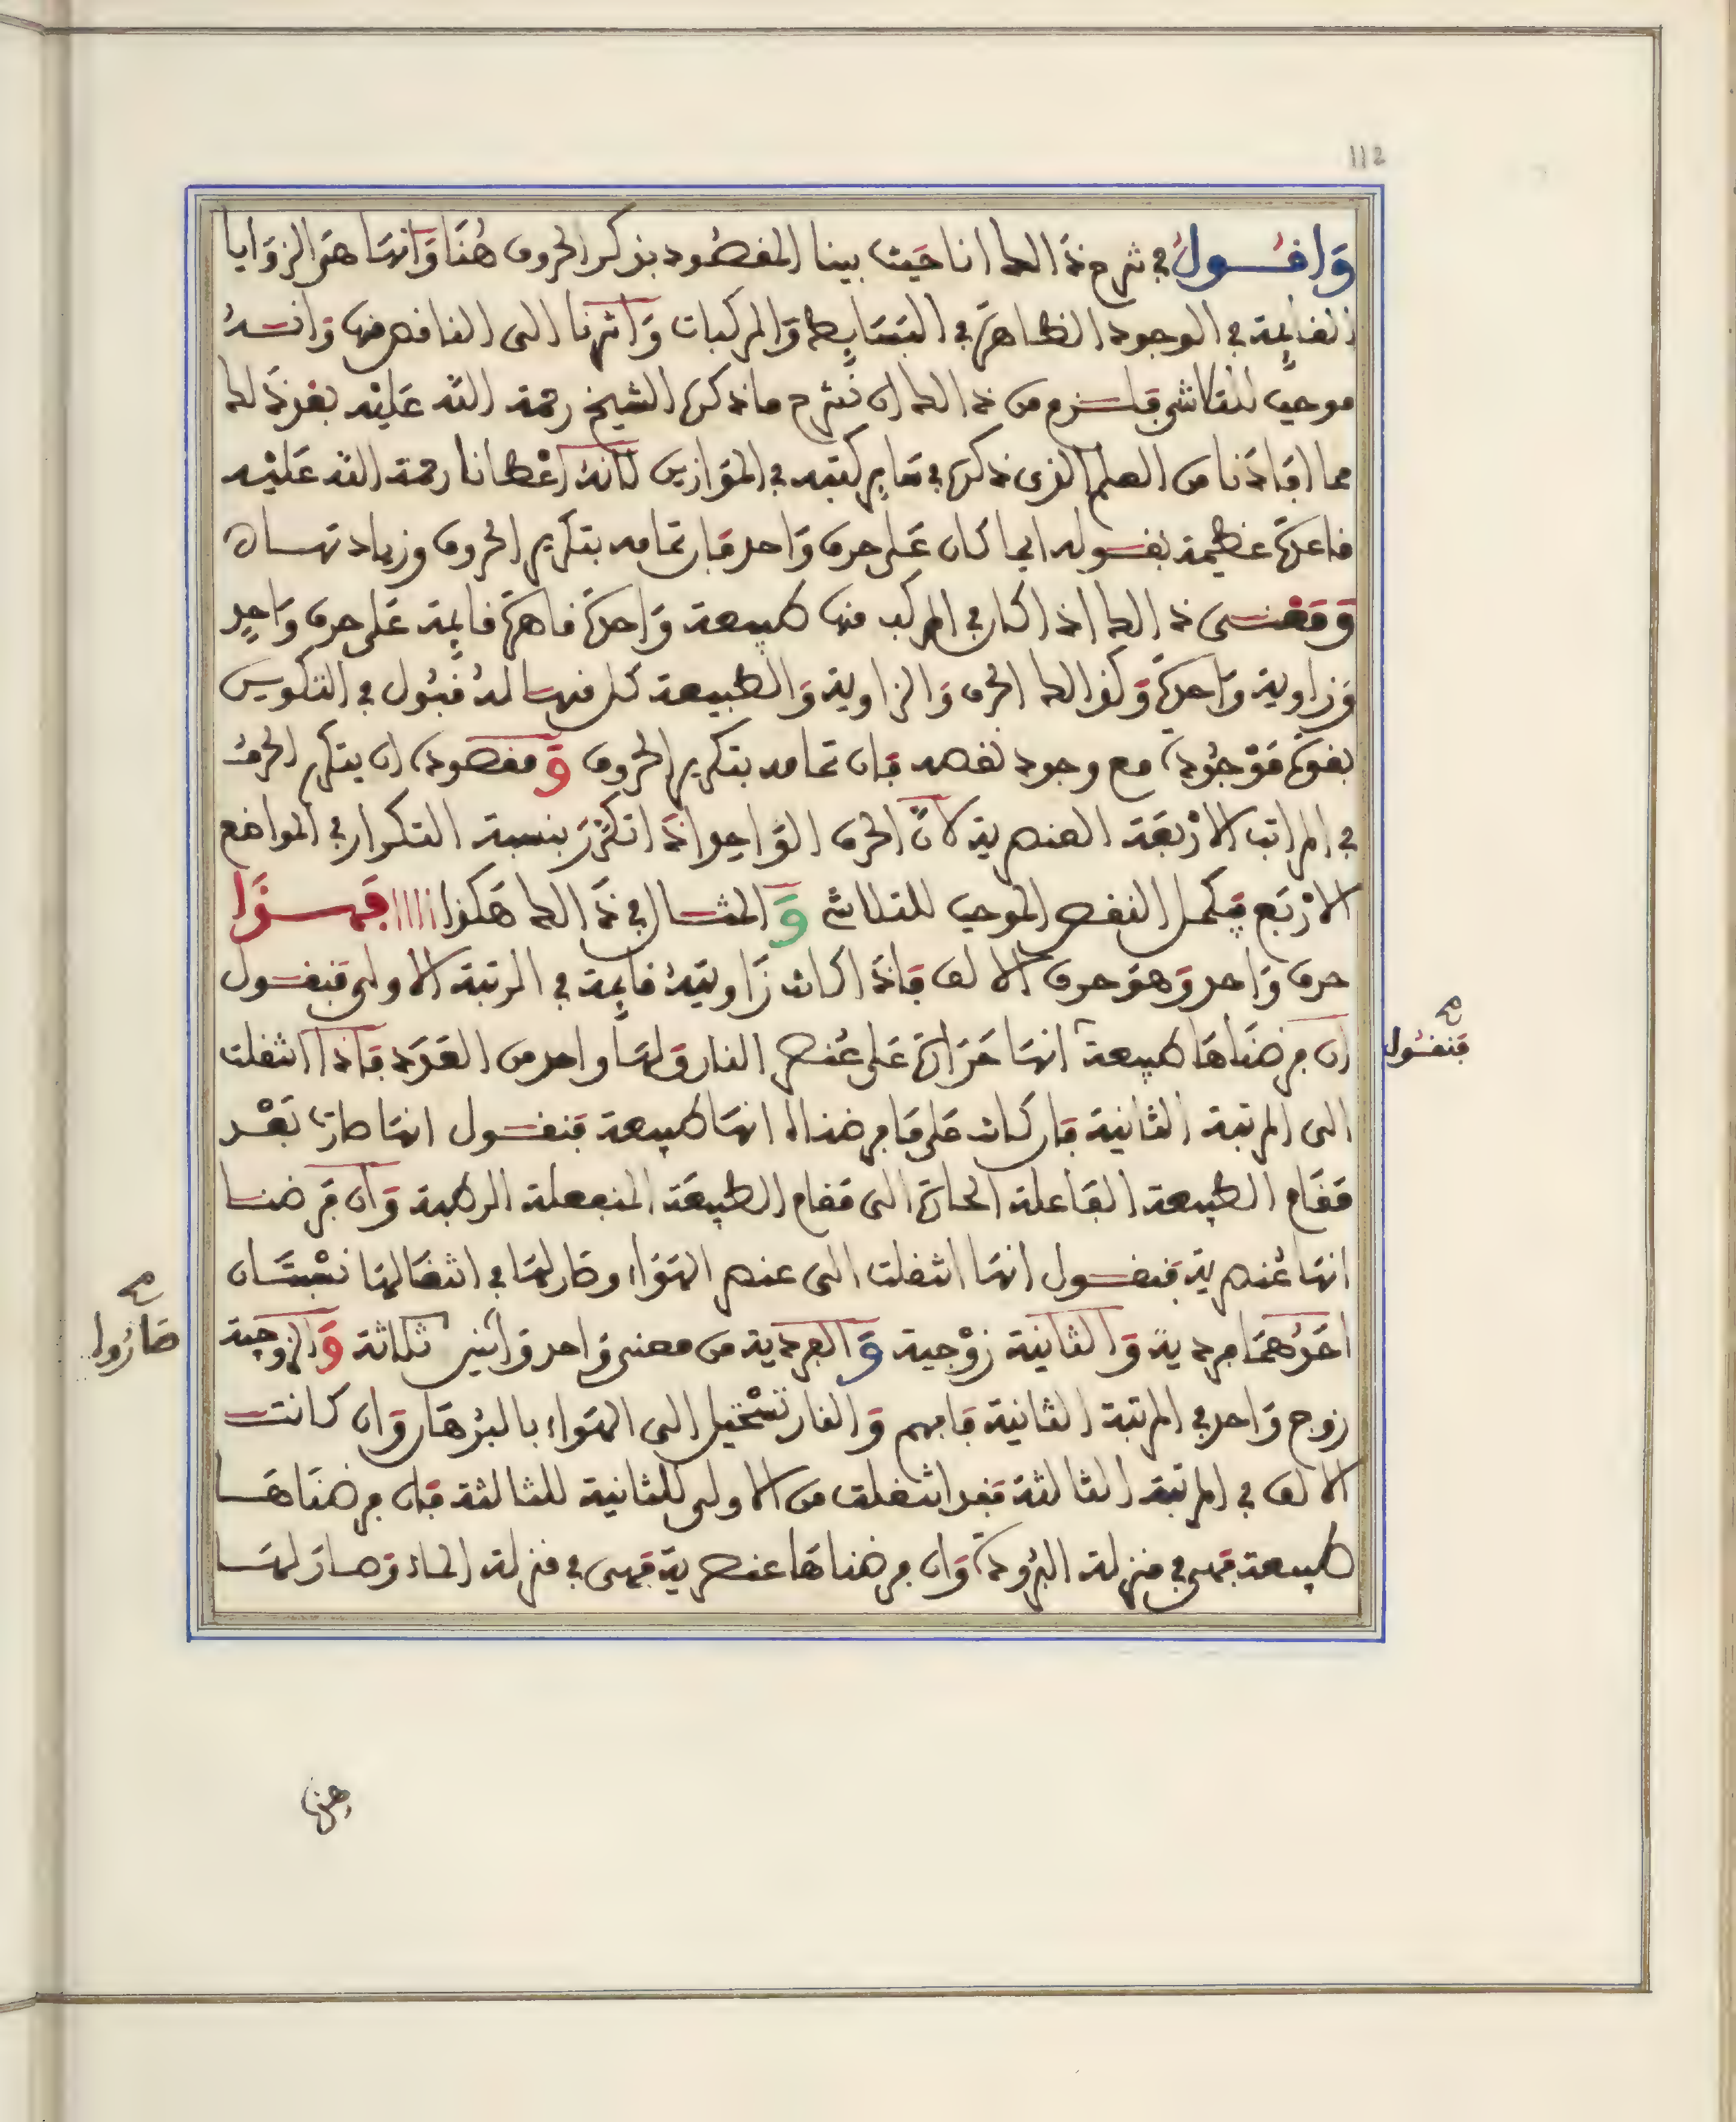 112
وَاقُول في شرح ذَالك انا حَيث بينا المقصُود بذكر الحروف هُنَا وَانهَا هىَ الزوَايا
القائِمة في الوجود الظاهرَة في البَسَايط وَالمركبات وَاشرنا الى الناقص منها وَانهُ
موجب للتلاشي فلزم من ذالك ان نشرح ما ذكره الشيخ رحمة الله عَليْه بعْد ذَلك
مما افادَنا من العلم الذى ذكره في سَاير كتبه في الموَازين لانهُ اعْطانا رحمة الله عَليْه
قاعدة عَظيمة بقوله اى ما كان عَلى حرف وَاحد فان تمامه بتكرير الحروف وزيادتهاه
وَمَعْنى ذالك اذا كان في المركب منها طبيعة وَاحدَة قاهرَة قايمة عَلى حرف وَاحِد
وَزاوية وَاحدَة وَكذالك الحرف وَالزاوية وَالطبيعة كل منها لهُ قُبُول في التكوين
بقوَة مَوْجُودة مع وجود نقصه فان تمامه بتكرير الحروف وَمقصوده ان يتكرر الحرفُ
في المراتب الارْبعَة العنصرية لانَّ الحرف الوَاحِد اذَا تكَرَّرَ بنسبة التكرار في المواضع
الارْبَع فيكمل النقص الموجب للتلاشي وَالمثال في ذَالك هَكذا ااااا فهذا
حرف وَاحد وَهوَ حرف الالف فاذَا كانت زَاويتهُ قايِمة في المرتبة الاولى فنقول
ان فرضنَاهَا طبيعة انهَا حَرَارة عَلى عُنصر النار وَلهَا واحد من العَدَد فاذا انتقلت
الى المرتبة الثانية فان كانت عَلى مَا فرضنااا انهَا طبيعة فنقول انهَا صارت بَعْد
مَقَام الطبيعة الفَاعلة الحارة الى مَقام الطبيعَة المنفعلة الرطبة وَان فَرضنا
انهَا عُنصرية فنقول انهَا انتقلت الى عنصر الهَوَاء وصَار لهَا في انتقَالهَا نسْبَتَان
احَدُهمَا فردية وَالثَانية زوْجية وَالفردية من معنى وَاحد وَاثنين ثلاثة وَالزوجية
زوج وَاحد في المرتبة الثانية فَافهم وَالنار تسْتحَيل الى الهوَاء بالبُرْهَان وَان كانت
الالف في المرتبة الثالثة فقد انتقلت من الاولى للثانية للثالثة فان فرضنَاهَا
طبيعة فهى في منزلة البرُودة وَان فرضناهَا عنصرية فهى في منزلة الماء وَصارَ لهَا
صح
فنقُول
صح
صَارُوا